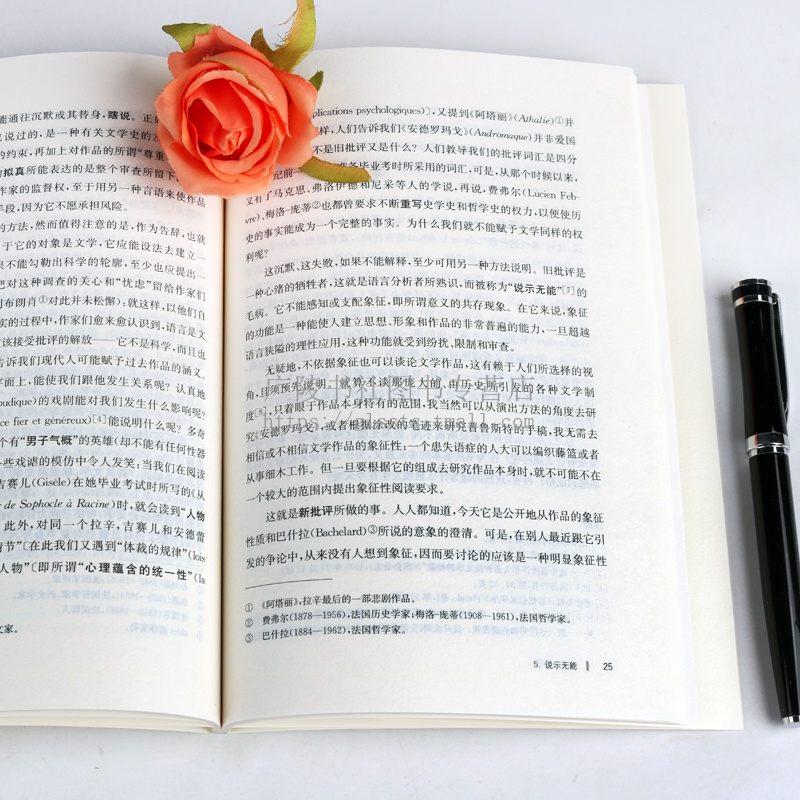 能通往沉默或其替身，瞎说。正如
也说过的，是一种有关文学史的
的约束，再加上对作品的所谓“尊重
拟真所能表达的是整个审查所留下
作家的监督权，至于用另一种言语来使作品
手段，因为它不愿承担风险。
的方法，然而值得注意的是，作为告辞，也就
于它的对象是文学，它应能设法去建立一
果不能勾勒出科学的轮廓，至少也应提出一
把对这种调查的关心和“忧虑”留给作家们
列布朗肖①对此并未松懈）；就这样，以他们自
实的过程中，作家们愈来愈认识到，语言是文
该接受批评的解放——它不是科学，而且也
告诉我们现代人可能赋予过去作品的涵义。
字面上，能使我们跟他发生关系呢？认真地
pudique)的戏剧能对我们发生什么影响呢？
ce fier et généreux)[4]能说明什么呢？多奇
个有“男子气概”的英雄（却不能有任何性器
一些戏谑的模仿中令人发笑；当我们在阅读
赛儿(Gisèle)在她毕业考试时所写的《从
de Sophocle à Racine)时，就会读到“人物
此外，对同一个拉辛，吉赛儿和安德蕾
情节”[在此我们又遇到“体裁的规律”(lois
人物”][即所谓“心理蕴含的统一性”(la
文家。
plications psychologiques)]，又提到《阿塔丽》(Athalie)①并
样，人们告诉我们《安德罗玛戈》(Andromaque)并非爱国
不是旧批评又是什么？人们教导我们的批评词汇是四分
纪前一 准备毕业考时所采用的词汇，可是，从那个时候以来，
又有了马克思、弗洛伊德和尼采等人的学说，再说，费弗尔(Lucien Feb-
vre)、梅洛-庞蒂②也都曾要求不断重写史学史和哲学史的权力，以便使历
史的事实能成为一个完整的事实。为什么我们就不能赋予文学同样的权
利呢？
这沉默、这失败，如果不能解释，至少可用另一种方法说明。旧批评是
一种心绪的牺牲者，这就是语言分析者所熟识，而被称为“说示无能”[7]的
毛病。它不能感知或支配象征，即所谓意义的共存现象。在它来说，象征
的功能是一种能使人建立思想、形象和作品的非常普遍的能力，一旦超越
语言狭隘的理性应用，这种功能就受到纷扰、限制和审查。
无疑地，不依据象征也可以谈论文学作品，这有赖于人们所选择的视
角，且须预先说明。就算不谈那庞大的、由历史所引发的各种文学制
度[8]，只着眼于作品本身特有的范围，我当然可以从演出方法的角度去研
究《安德罗玛戈》，或者根据涂改的笔迹来研究普鲁斯特的手稿，我无需去
相信或不相信文学作品的象征性：一个患失语症的人大可以编织藤篮或者
从事细木工作。但一旦要根据它的组成去研究作品本身时，就不可能不在
一个较大的范围内提出象征性阅读要求。
这就是新批评所做的事。人人都知道，今天它是公开地从作品的象征
性质和巴什拉(Bachelard)③所说的意象的澄清。可是，在别人最近跟它引
发的争论中，从来没有人想到象征，因而要讨论的应该是一种明显象征性
① 《阿塔丽》，拉辛最后的一部悲剧作品。
② 费弗尔(1878—1956)，法国历史学家；梅洛-庞蒂(1908—1961)，法国哲学家。
③ 巴什拉(1884—1962)，法国哲学家。
5. 说示无能 ‖ 25
广陵书社图书专营店